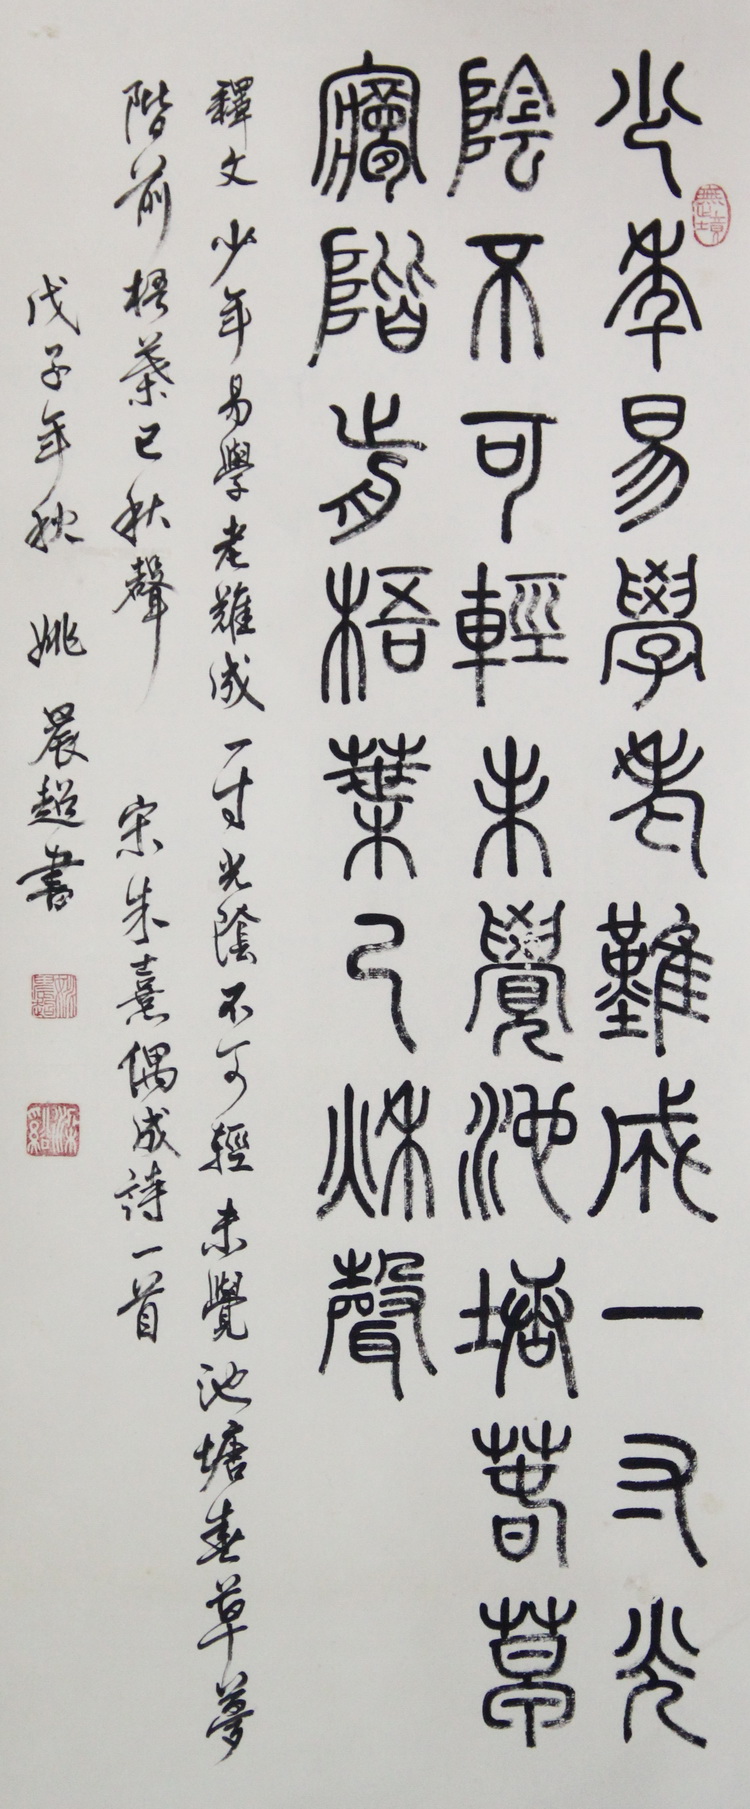 少年易學老難成一寸光
陰不可輕未覺池塘春草
夢階前梧葉已秋聲
釋文 少年易學老難成一寸光陰不可輕未覺池塘春草夢
階前梧葉已秋聲 宋朱熹偶成詩一首
戊子年秋 姚晨超書